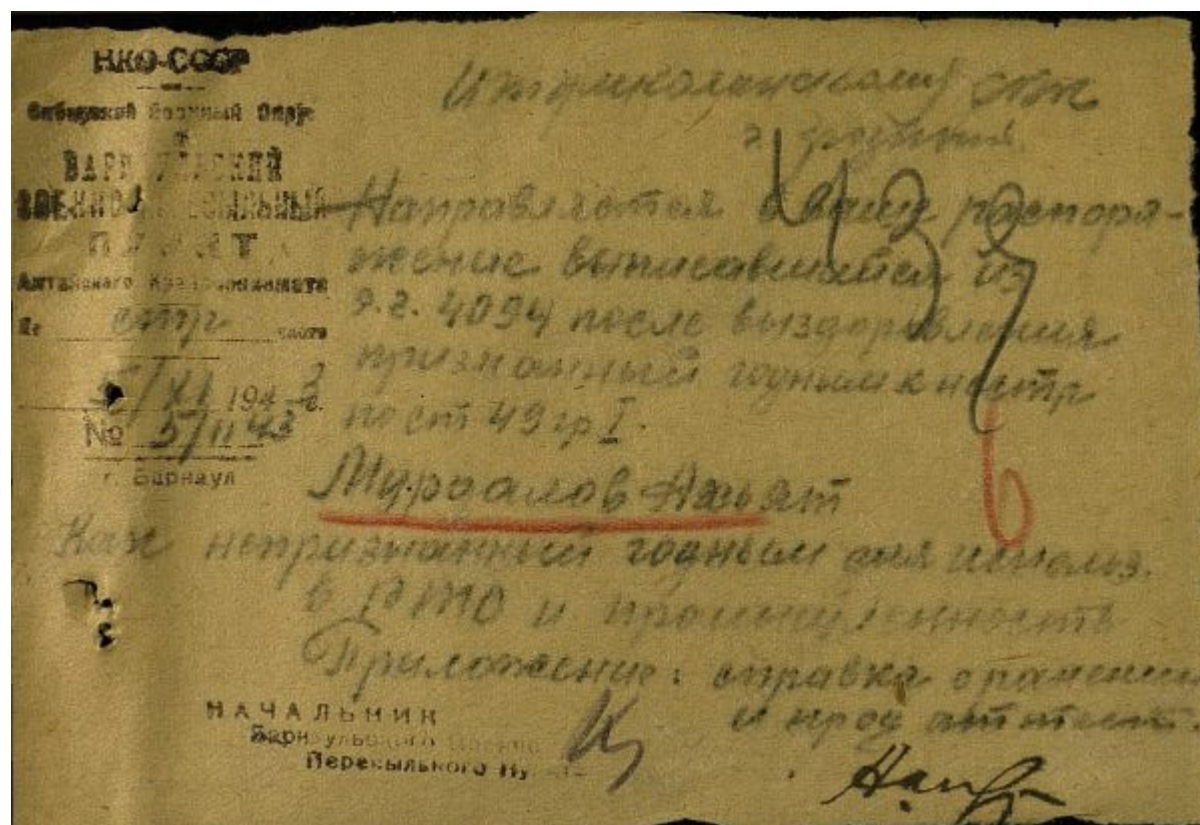 НКО-СССР
Сибирский Военный Округ
БАРНАУЛЬСКИЙ
ВОЕННО-ПЕРЕСЫЛЬНЫЙ
ПУНКТ
Алтайского Крайвоенкомата
стр части
5/XI 1943 г.
№ 5/11 43
г. Барнаул
Итумкалинскому
Направляется в ваше распоря-
жение выписавшийся из
э.г. 4094 после выздоровления
признанный годным к нестр
по ст 49 гр I.
Мурдалов Азьят
Как непризнанный годным для использ.
в РМО и промышленность
Приложение: справка о ранении
и прод аттестат.
НАЧАЛЬНИК
Барнаульского Военно
Пересыльного Пункта